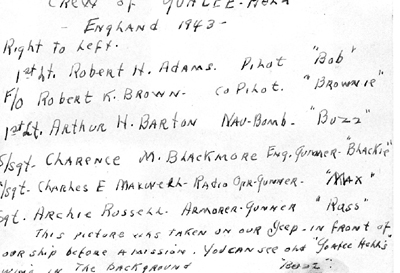 CREW OF
- ENGLAND 1943 -
Right to Left.
1st Lt. Robert H. Adams. Pilot "Bob"
F/O Robert K. Brown - Co Pilot. "Brownie"
1st Lt. Arthur H. Barton Nav-Bomb - "Buzz"
S/Sgt - Charence M. Blackmore Eng. Gunner - "Blackie"
/Sgt. Charles E Maxwell - Radio Opr-Gunner - "Max"
Sgt. Archie Russell. Armorer-Gunner "Russ"
This picture was taken on our Jeep - in front of
our ship before a mission. You can see old
wing in the background "Buzz".